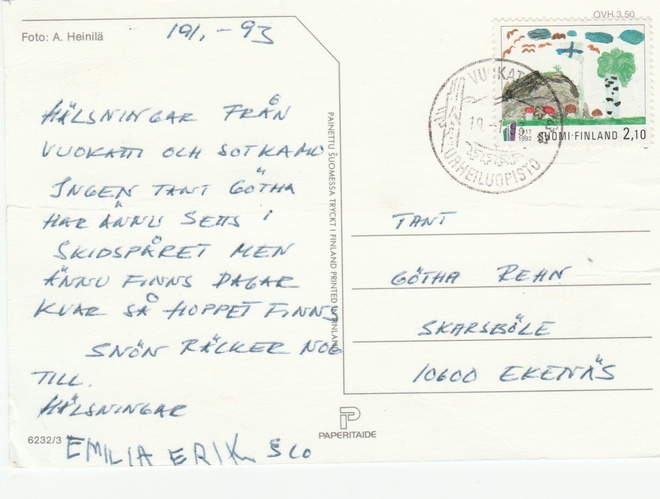 OVH 3,50
Foto: A. Heinilä
19/1.-93
HÄLSNINGAR FRÅN
VUOKATTI OCH SOTKAMO
INGEN TANT GÖTHA
HAR ÄNNU SETTS I
SKIDSPÅRET MEN
ÄNNU FINNS DAGAR
KVAR SÅ HOPPET FINNS
SNÖN RÄCKER NOG
TILL.
HÄLSNINGAR
EMILIA ERIK
6232/3
PAINETTU SUOMESSA TRYCKT I FINLAND PRINTED IN FINLAND
PAPERITAIDE
1917
1992
SUOMI-FINLAND 2,10
VUOKATTI
URHEILUOPISTO
TANT
GÖTHA REHN
SKARSBÖLE
10600 EKENÄS